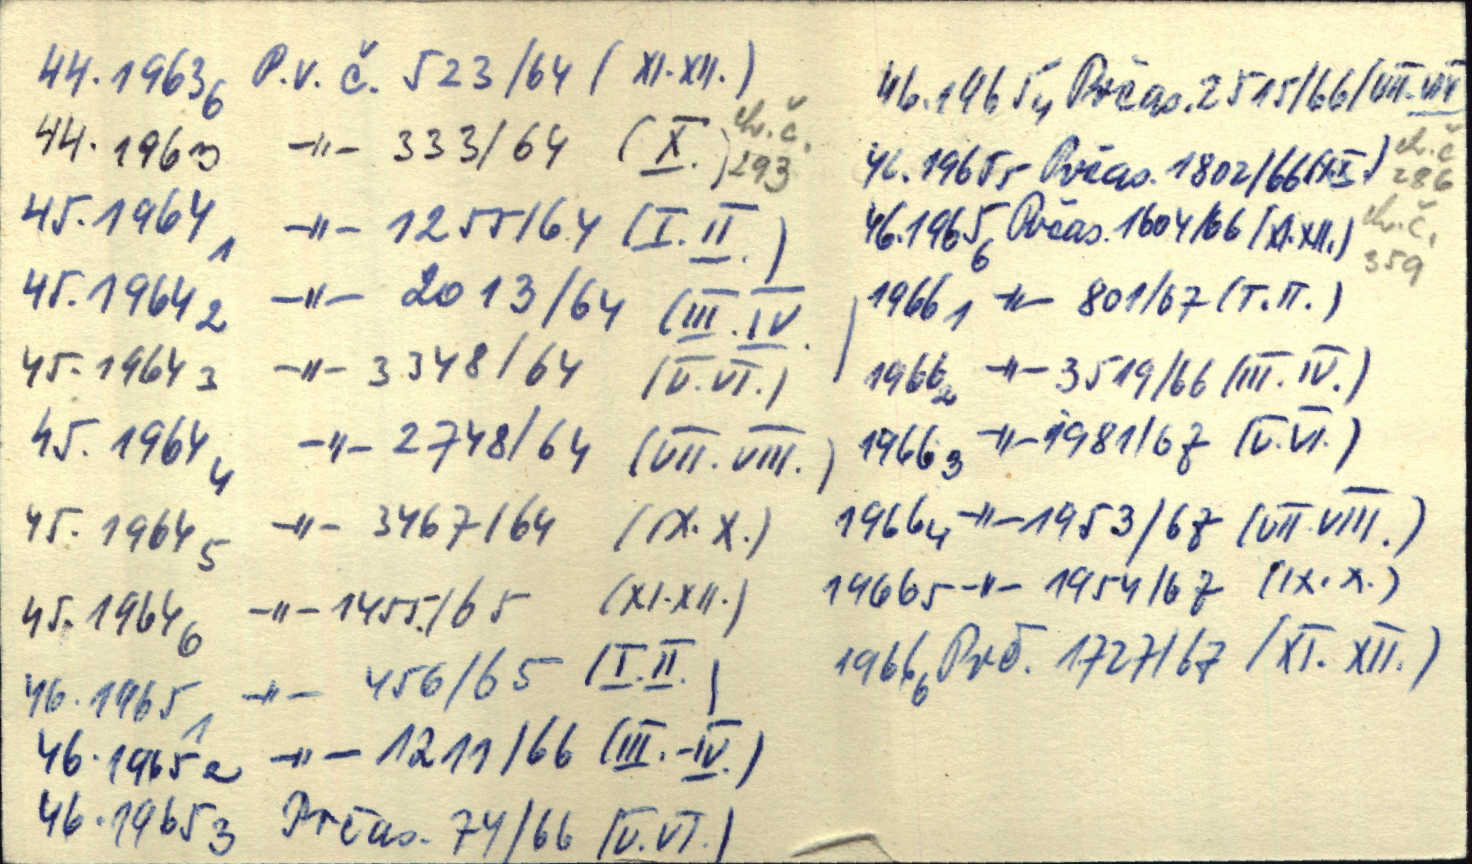 44.1963₆ P.v.č. 523/64 (XI.XII.)
44.1963 -"- 333/64 (X.) chr.č. 293
45.1964₁ -"- 1255/64 (I.II.)
45.1964₂ -"- 2013/64 (III.IV.)
45.1964₃ -"- 3348/64 (V.VI.)
45.1964₄ -"- 2748/64 (VII.VIII.)
45.1964₅ -"- 3467/64 (IX.X.)
45.1964₆ -"- 1455/65 (XI.XII.)
46.1965₁ -"- 456/65 (I.II.)
46.1965₂ -"- 1211/66 (III.-IV.)
46.1965₃ Prčas. 74/66 (V.VI.)
46.1965₄ Prčas. 2515/66 (VII.VIII
46.1965₅ Prčas. 1802/66 č 286
46.1965₆ Prčas. 1604/66 (XI.XII.) č. 359
1966₁ -"- 801/67 (I.II.)
1966₂ -"- 3519/66 (III.IV.)
1966₃ -"- 1981/67 (V.VI.)
1966₄ -"- 1953/67 (VII.VIII.)
1966₅ -"- 1954/67 (IX.X.)
1966₆ Prč. 1727/67 (XI.XII.)